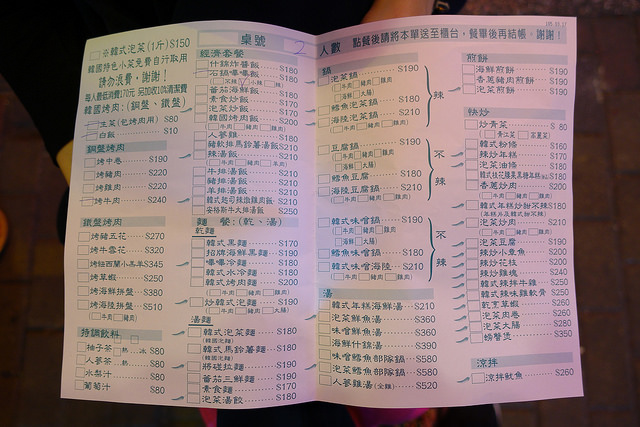 ※韓式泡菜(1斤)$150
韓國特色小菜免費自行取用
請勿浪費,謝謝!
每人最低消費170元
韓國烤肉:(銅盤、鐵盤)
生菜(包烤肉用) $80
白飯 $10
銅盤烤肉
烤中卷 $190
烤豬肉 $220
烤雞肉 $220
烤牛肉 $240
鐵盤烤肉
烤豬五花 $270
烤牛雪花 $320
烤紐西蘭小羔羊$345
烤草蝦 $250
烤海鮮拼盤 $380
烤海陸拼盤 $510
特調飲料
柚子茶 熱 冰 $80
人蔘茶 熱 $80
水梨汁 $80
葡萄汁 $80
桌號 2
經濟套餐
什錦炸醬飯 $180
石鍋嗶嗶飯 $180
番茄海鮮飯 $180
素食炒飯 $170
泡菜炒飯 $170
韓國烤肉飯 $200
人蔘雞 $180
豬軟排馬鈴薯湯飯$210
辣湯飯 $210
牛排湯飯 $210
豬排湯飯 $210
羊排湯飯 $210
安格斯牛太排湯飯 $250
麵 餐:(乾、湯)
乾麵
韓式黑麵 $170
招牌海鮮黑麵 $190
嗶嗶冷麵 $180
韓式水冷麵 $180
韓式烤肉麵 $200
炒韓式泡麵 $190
湯麵
韓式泡菜麵 $180
韓式馬鈴薯麵 $180
將碰拉麵 $190
番茄三鮮麵 $190
素食麵 $170
泡菜湯餃 $180
人數 點餐後請將本單送至櫃台,餐畢後再結帳。謝謝!
鍋
泡菜鍋 $190
鱈魚泡菜鍋 $180
海陸泡菜鍋 $210
辣
豆腐鍋 $190
鱈魚豆腐 $180
海陸豆腐鍋 $210
不辣
韓式味噌鍋 $190
鱈魚味噌鍋 $180
韓式味噌海陸 $210
不辣
湯
韓式年糕海鮮湯 $210
泡菜鮮魚湯 $360
味噌鮮魚湯 $360
海鮮什錦湯 $390
味噌鱈魚部隊鍋 $580
泡菜鱈魚部隊鍋 $580
人蔘雞湯(全雞) $520
煎餅
海鮮煎餅 $190
香蔥豬肉煎餅 $200
泡菜煎餅 $190
快炒
炒青菜 $ 80
韓式粉條 $160
辣炒年糕 $170
泡菜油條 $180
香蔥炒肉 $200
韓式年糕炒甜不辣$180
泡菜炒肉 $210
泡菜豆腐 $190
辣炒小章魚 $200
辣炒花枝 $200
辣炒雞塊 $240
韓式辣拌牛雜 $250
韓式辣味雞軟骨 $250
乾烹草蝦 $260
泡菜肉卷 $260
泡菜大腸 $280
螃蟹煲 $350
涼拌
涼拌魷魚 $260